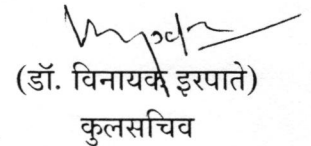 (डॉ. विनायक इरपाते)
कुलसचिव